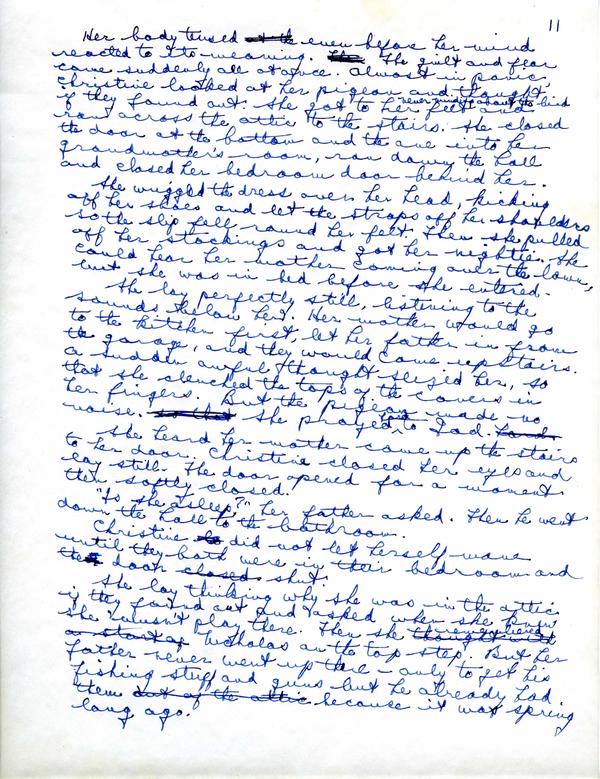 11
Her body tensed even before her mind
reacted to its meaning. The guilt and fear
came suddenly all at once. Almost in panic,
Christine looked at her pigeon and thought
if they found out. She got to her feet and
never mind about the bird
ran across the attic to the stairs. She closed
the door at the bottom and the one into her
grandmother's room, ran down the hall
and closed her bedroom door behind her.
She wuggled the dress over her head, kicking
off her shoes and let the straps off her shoulders
so the slip fell round her feet. Then she pulled
off her stockings and got her nightie. She
could hear her mother coming over the lawn,
but she was in bed before she entered.
She lay perfectly still, listening to the
sounds below her. Her mother would go
to the kitchen first, let her father in from
the garage, and they would come upstairs.
A sudden awful thought seized her, so
that she clenched the tops of the covers in
her fingers. But the pigeon made no
noise. so that She prayed to God.
She heard her mother come up the stairs
to her door. Christine closed her eyes and
lay still. The door opened for a moment
then softly closed.
"Is she asleep?" her father asked. Then he went
down the hall to the bathroom.
Christine did not let herself move
until they both were in their bedroom and
the door closed shut.
She lay thinking why she was in the attic
if they found out and asked when she knew
she mustn't play there. Then she thought
Nicholas on the top step. But her
father never went up there - only to get his
fishing stuff and guns but he already had
them out of the attic because it was spring
long ago.